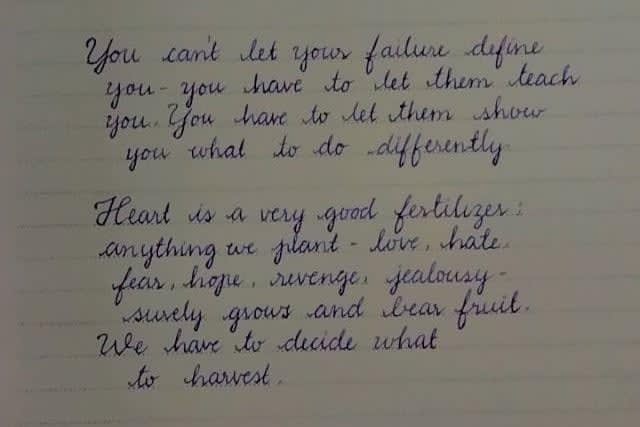 You can't let your failure define
you - you have to let them teach
you. You have to let them show
you what to do differently
Heart is a very good fertilizer:
anything we plant - love, hate,
fear, hope, revenge, jealousy -
surely grows and bear fruit.
We have to decide what
to harvest.